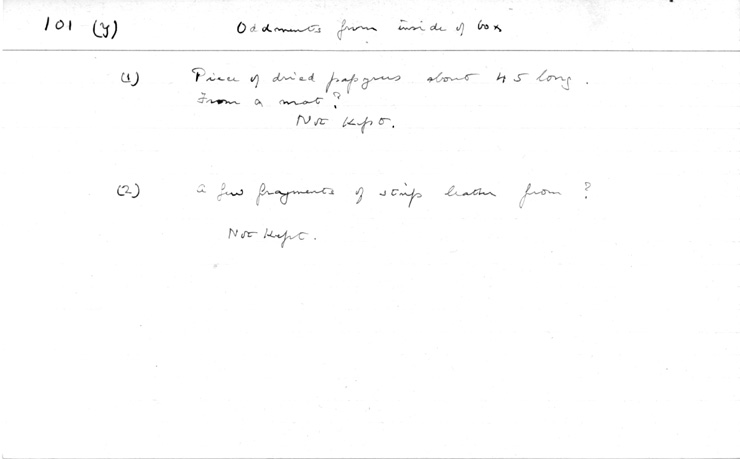 101 (y) Oddments from inside of box
(1) Piece of dried papyrus about 45 long.
From a mat?
Not kept.
(2) A few fragments of strip leather from ?
Not kept.